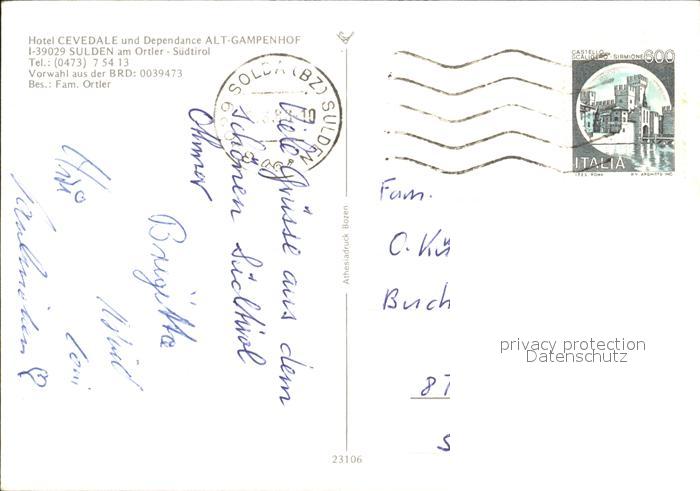 Hotel CEVEDALE und Dependance ALT-GAMPENHOF
I-39029 SULDEN am Ortler - Südtirol
Tel.: (0473) 7 54 13
Vorwahl aus der BRD: 0039473
Bes.: Fam. Ortler
SOLDA (BZ) SULDEN
CASTELLO
SCALIGERO · SIRMIONE
600
ITALIA
I.P.Z.S. ROMA
Viele Grüsse aus dem
schönen Südtirol
Othmar
Brigitte
Athesiadruck Bozen
Fam.
O. Kü
Buch
privacy protection
Datenschutz
23106